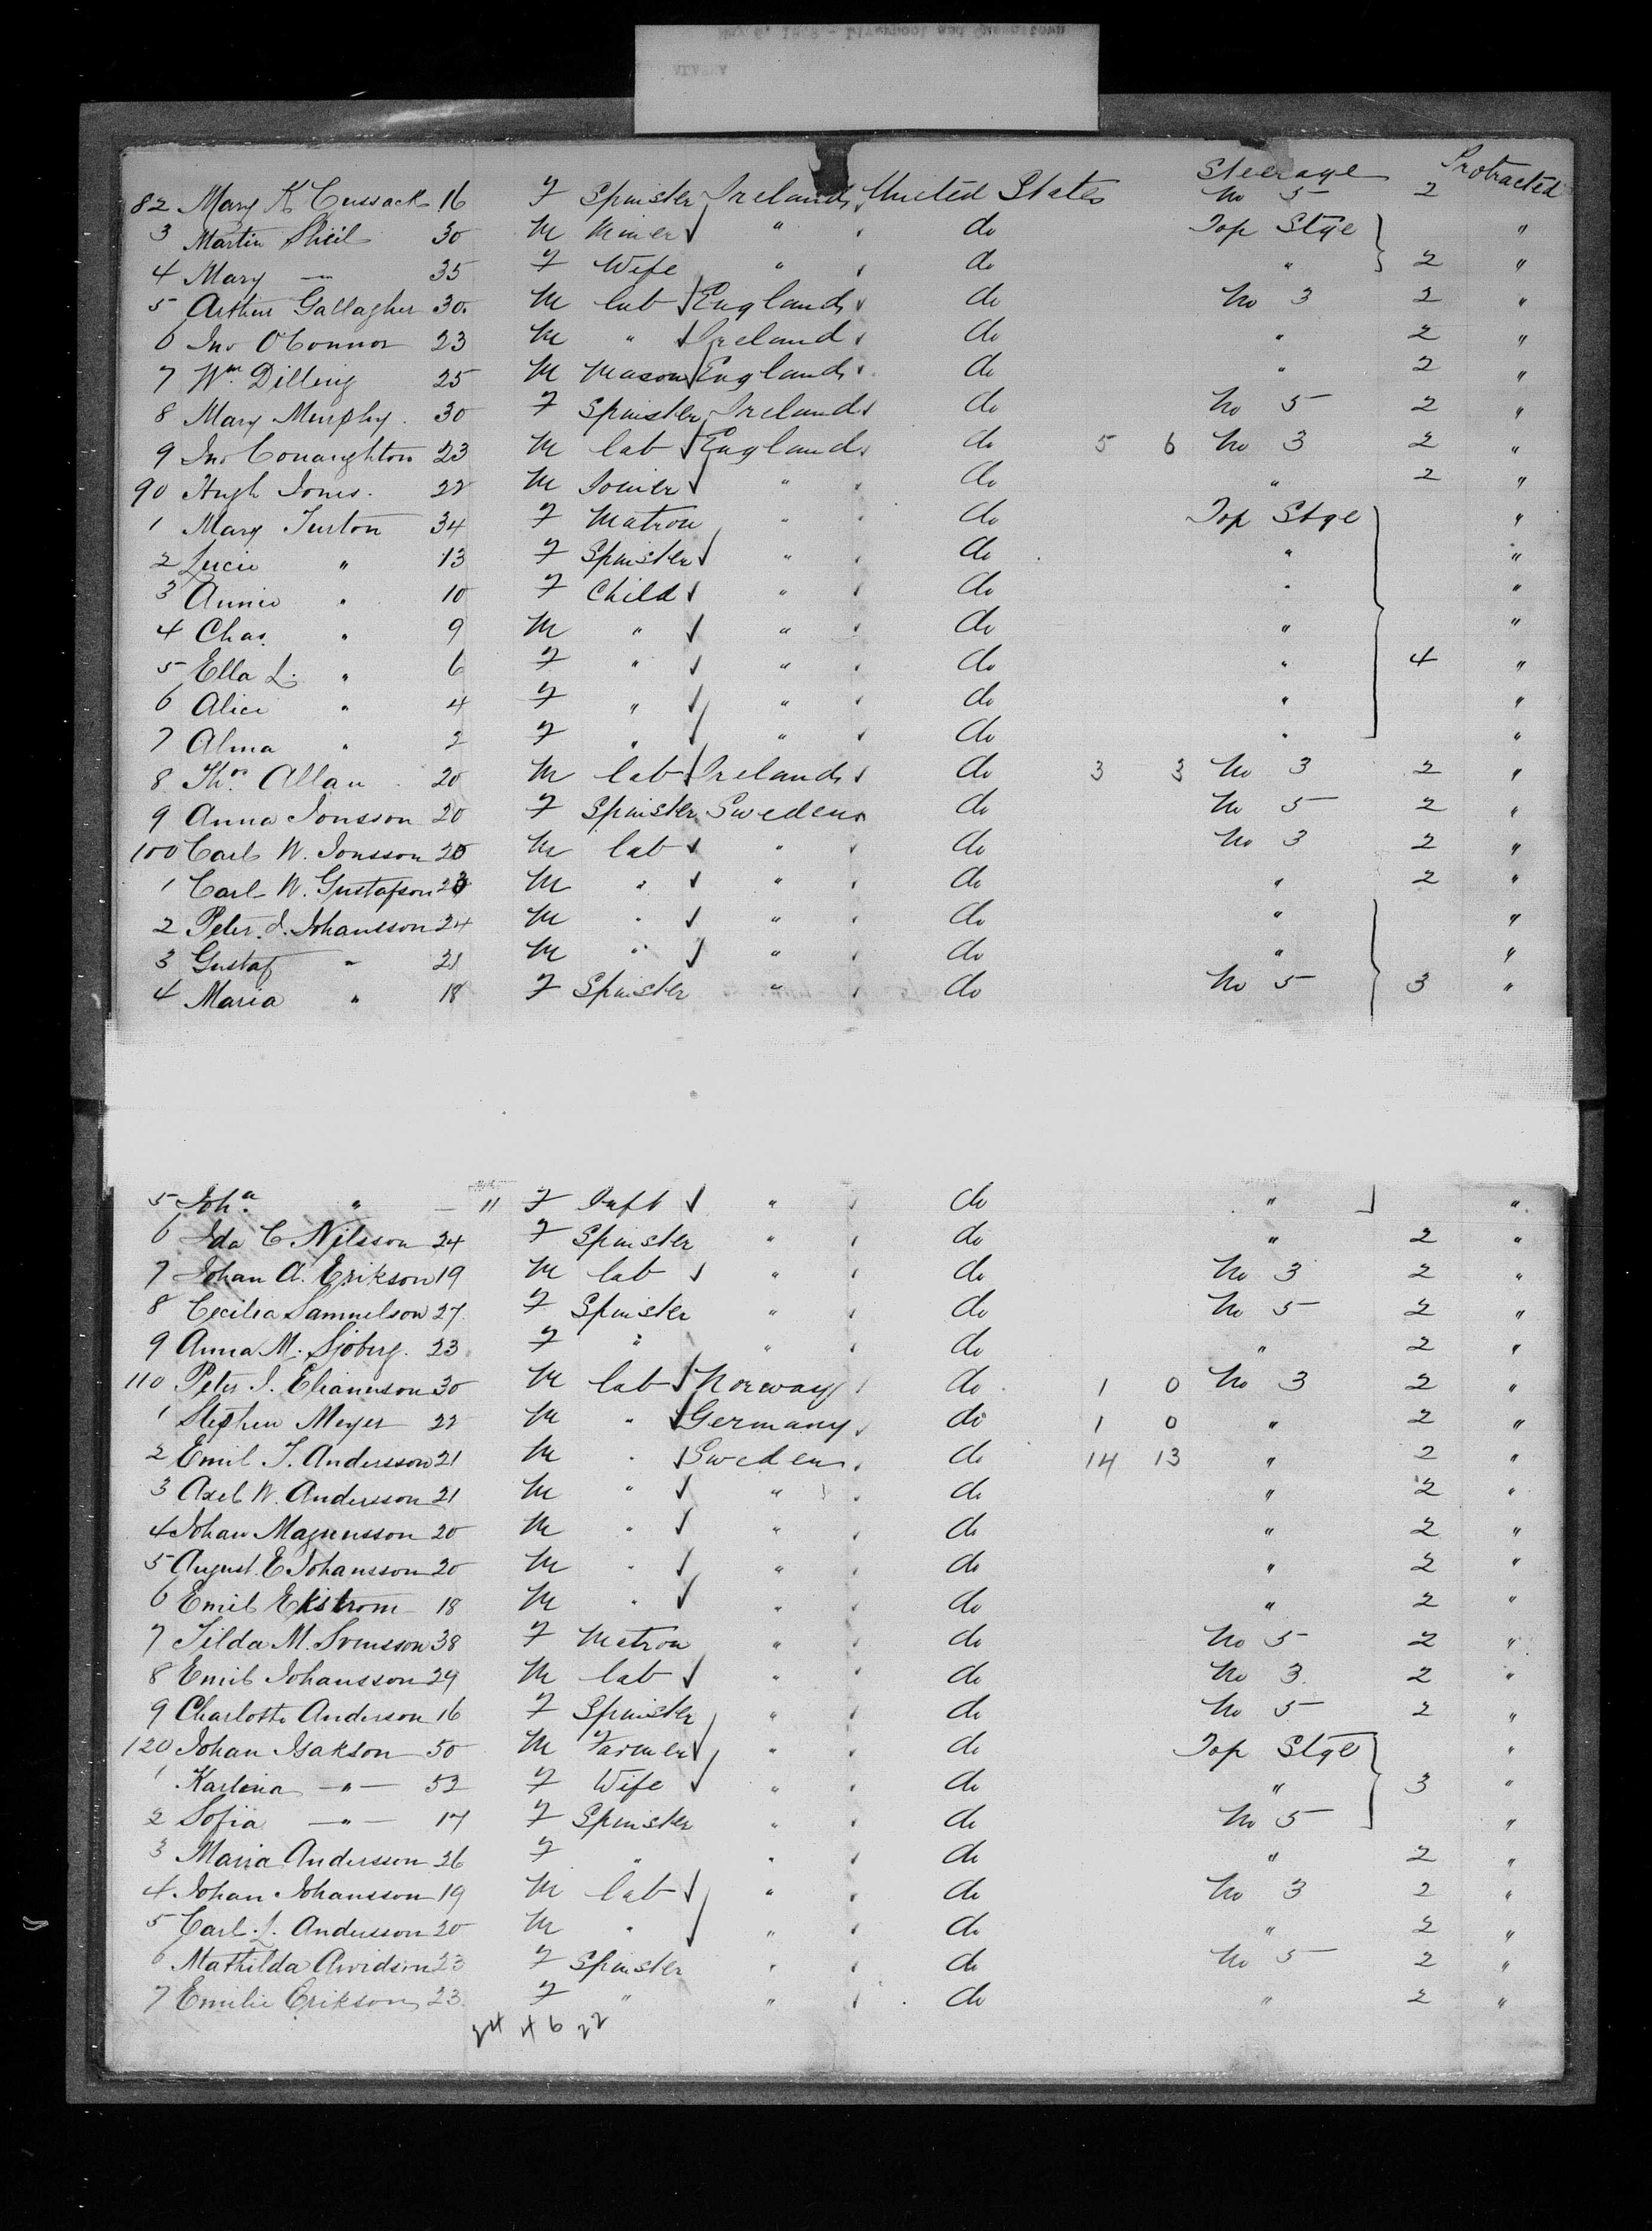 May 6, 1888 - Liverpool and Queenstown
ALASKA
Steerage Protracted
82 Mary K Cussack 16 F Spinster Ireland United States No 5 2
3 Martin Sheil 30 M Miner " do Top Stge "
4 Mary — 35 F Wife " do " 2 "
5 Arthur Gallagher 30 M lab England do No 3 2 "
6 Jno O'Connor 23 M " Ireland do " 2 "
7 Wm. Dilling 25 M Mason England do " 2 "
8 Mary Murphy 30 F Spinster Ireland do No 5 2 "
9 Jno Conaughton 23 M lab England do 5 6 No 3 2 "
90 Hugh Jones 22 M Joiner " do " 2 "
1 Mary Turton 34 F Matron " do Top Stge "
2 Lucie " 13 F Spinster " do " "
3 Annie " 10 F Child " do " "
4 Chas. " 9 M " " do " "
5 Ella L. " 6 F " " do " 4 "
6 Alice " 4 F " " do " "
7 Alma " 2 F " " do " "
8 Thos. Allan 20 M lab Ireland do 3 3 No 3 2 "
9 Anna Jonsson 20 F Spinster Sweden do No 5 2 "
100 Carl W. Jonsson 20 M lab " do No 3 2 "
1 Carl W. Gustafson 23 M " " do " 2 "
2 Peter J. Johansson 24 M " " do " "
3 Gustaf " 21 M " " do " "
4 Maria " 18 F Spinster " do No 5 3 "
5 Joha. " — 11 F Inft " do " "
6 Ida C Nilsson 24 F Spinster " do " 2 "
7 Johan A. Erikson 19 M lab " do No 3 2 "
8 Cecilia Samuelson 27 F Spinster " do No 5 2 "
9 Anna M. Sjoberg 23 F " " do " 2 "
110 Peter J. 30 M lab Norway do 1 0 No 3 2 "
1 Stephen Meyer 22 M " Germany do 1 0 " 2 "
2 Emil T. Andersson 21 M " Sweden do 14 13 " 2 "
3 Axel W. Andersson 21 M " " do " 2 "
4 Johan Magnusson 20 M " " do " 2 "
5 August E Johansson 20 M " " do " 2 "
6 Emil Ekstrom 18 M " " do " 2 "
7 Tilda M. Svensson 38 F Matron " do No 5 2 "
8 Emil Johansson 29 M lab " do No 3 2 "
9 Charlotte Anderson 16 F Spinster " do No 5 2 "
120 Johan Isakson 50 M Farmer " do Top Stge "
1 Karlina —"— 52 F Wife " do " 3 "
2 Sofia —"— 17 F Spinster " do No 5 "
3 Maria Andersson 26 F " " do " 2 "
4 Johan Johansson 19 M lab " do No 3 2 "
5 Carl L. Andersson 20 M " " do " 2 "
6 Mathilda Arvidson 23 F Spinster " do No 5 2 "
7 Emilie Erikson 23 F " " do " 2 "
24 4 6 22